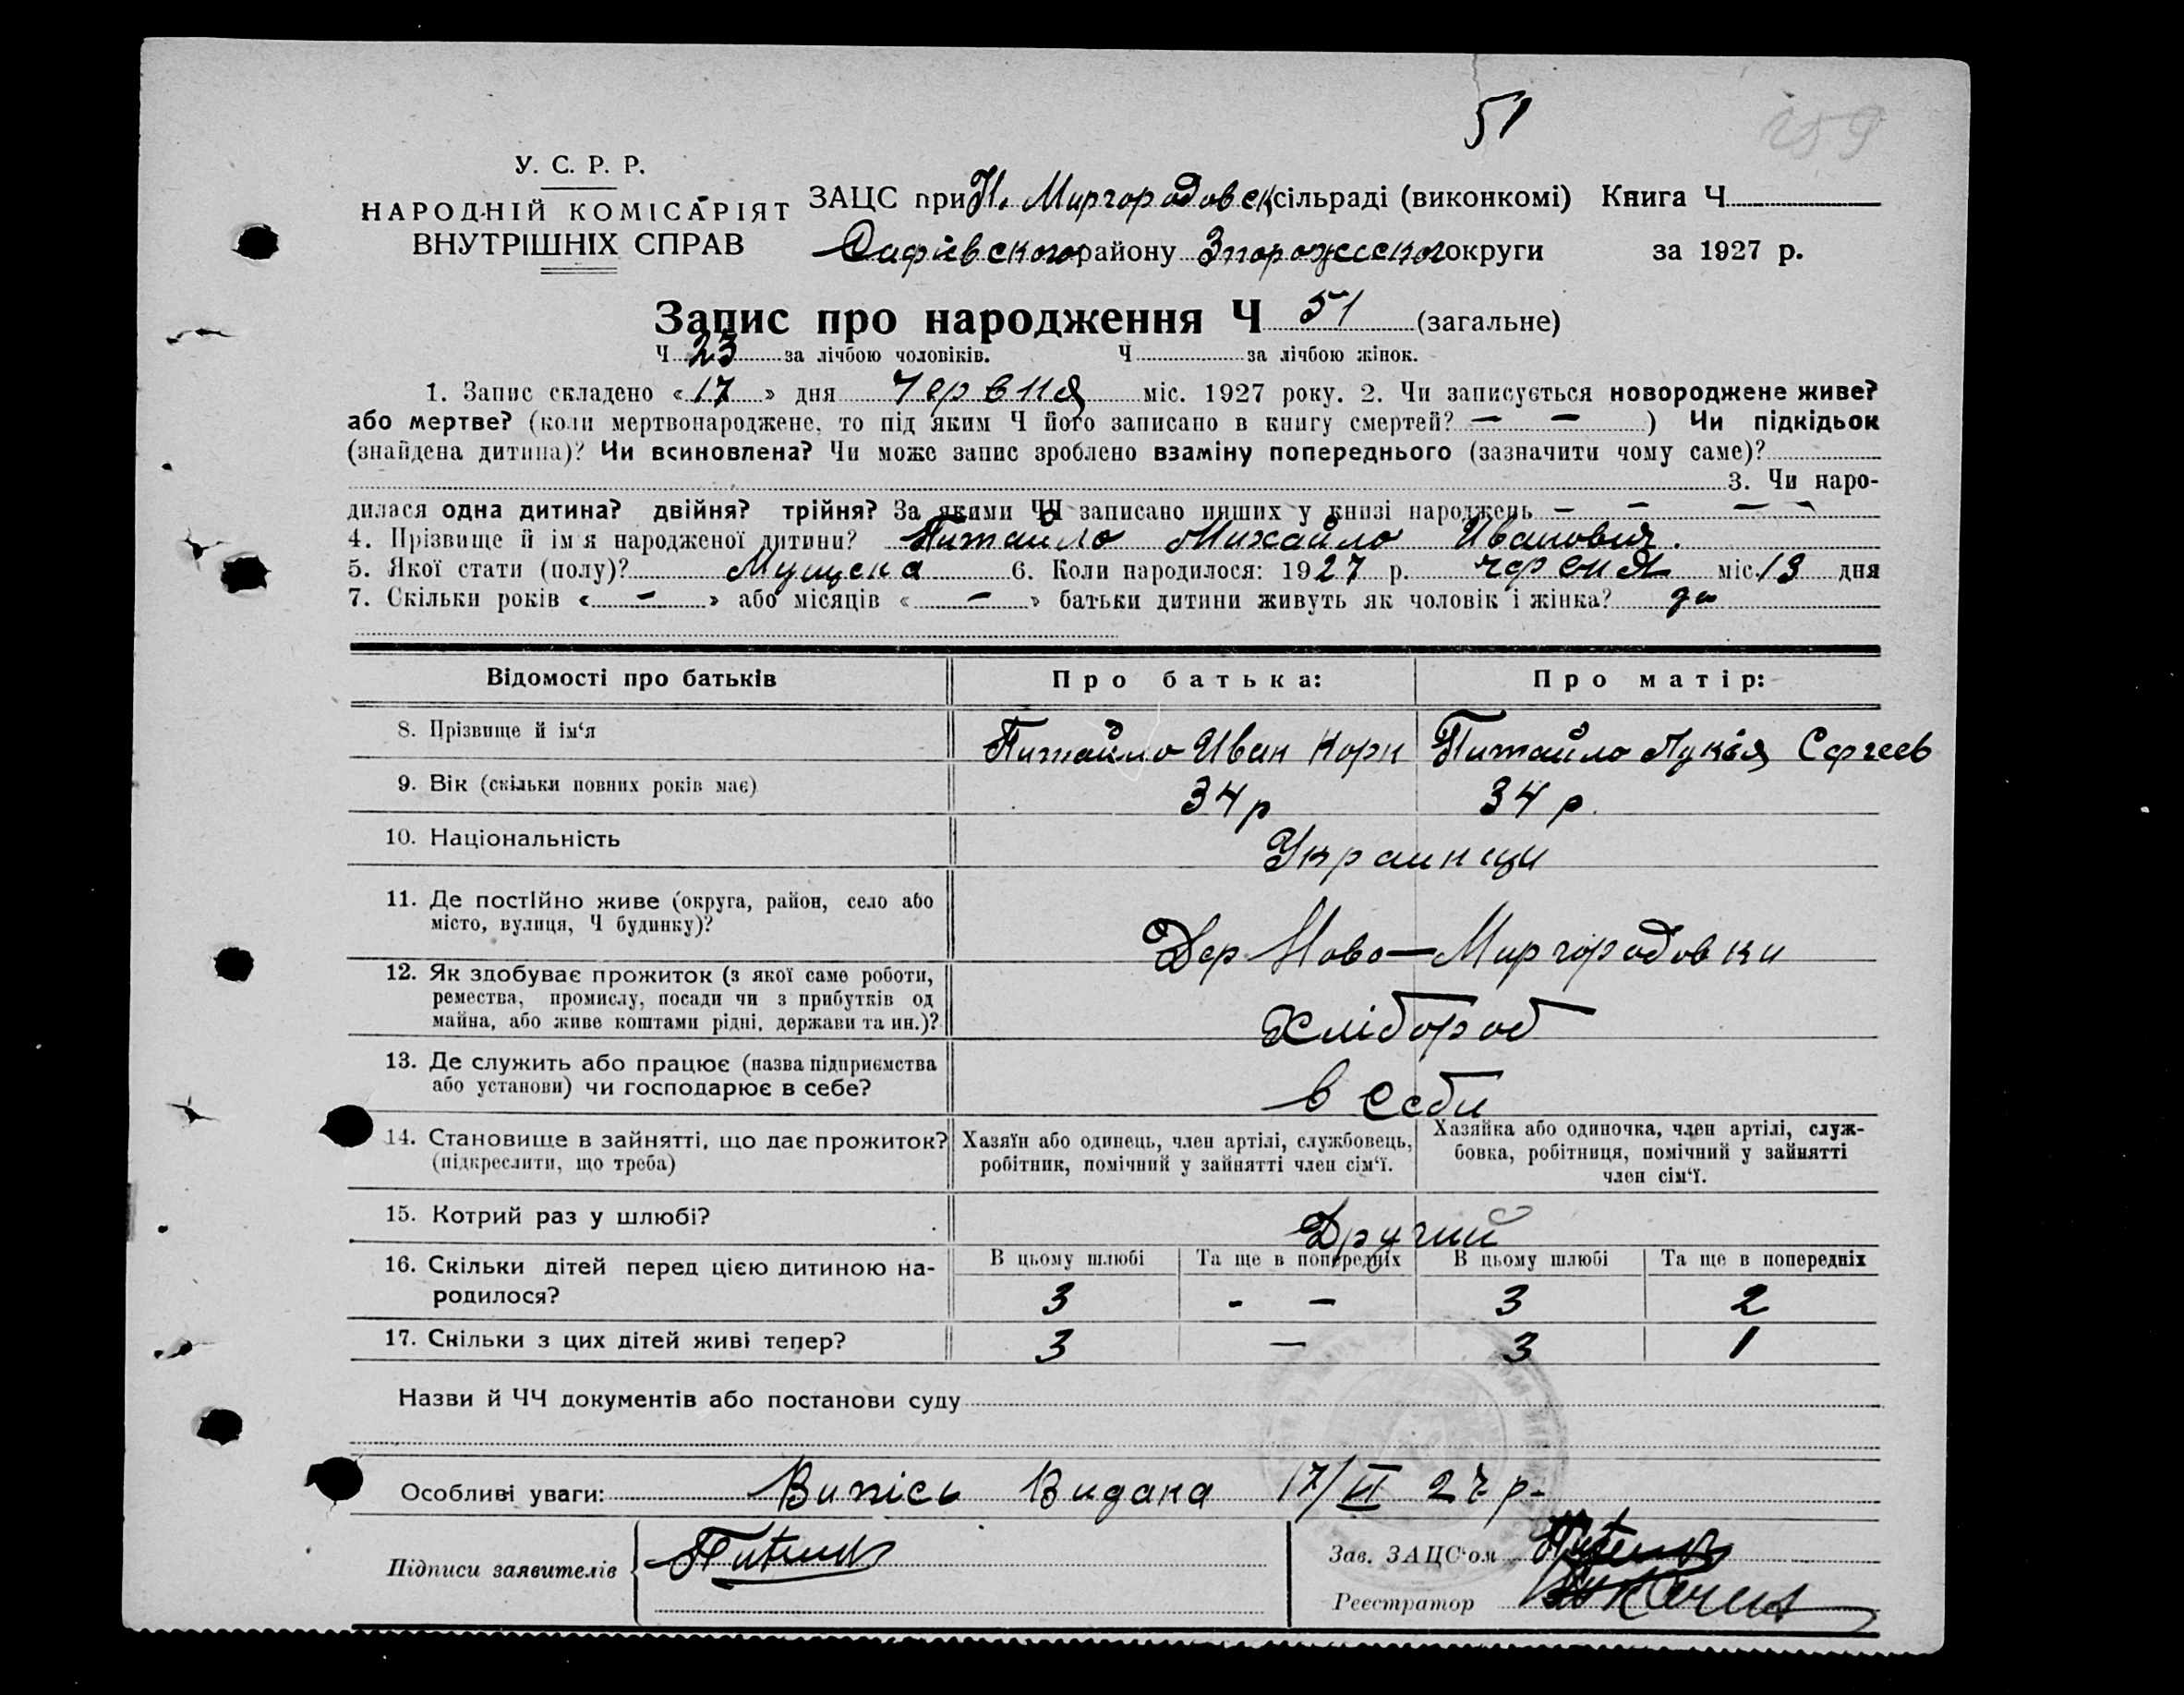 51
159
У. С. Р. Р.
НАРОДНІЙ КОМІСАРІЯТ
ВНУТРІШНІХ СПРАВ
ЗАЦС при Н. Миргородовск сільраді (виконкомі) Книга Ч
Софіевского району Зпорожсского округи за 1927 р.
Запис про народження Ч 51 (загальне)
Ч 23 за лічбою чоловіків. Ч за лічбою жінок.
1. Запис складено « 17 » дня червня міс. 1927 року. 2. Чи записується новороджене живе?
або мертве? (коли мертвонароджене, то під яким Ч його записано в книгу смертей? — — ) Чи підкідьок
(знайдена дитина)? Чи всиновлена? Чи може запис зроблено взаміну попереднього (зазначити чому саме)?
3. Чи наро-
дилася одна дитина? двійня? трійня? За якими ЧЧ записано инших у книзі народжень — — — —
4. Прізвище й ім'я народженої дитини? Питайло Михайло Иванович.
5. Якої стати (полу)? Мущена 6. Коли народилося: 1927 р. червня міс 13 дня
7. Скільки років « — » або місяців « — » батьки дитини живуть як чоловік і жінка? да
Відомості про батьків Про батька: Про матір:
8. Прізвище й ім'я Питайло Иван Корн Питайло Лукія Сергеев
9. Вік (скільки повних років має) 34 р 34 р.
10. Національність Украинци
11. Де постійно живе (округа, район, село або
місто, вулиця, Ч будинку)? Дер Ново—Миргородовки
12. Як здобуває прожиток (з якої саме роботи,
ремества, промислу, посади чи з прибутків од
майна, або живе коштами рідні, держави та ин.)? Хлібороб
13. Де служить або працює (назва підприємства
або установи) чи господарює в себе? в себи
14. Становище в зайнятті, що дає прожиток?
(підкреслити, що треба)
Хазяїн або одинець, член артілі, службовець,
робітник, помічний у зайнятті член сім'ї.
Хазяйка або одиночка, член артілі, служ-
бовка, робітниця, помічний у зайнятті
член сім'ї.
15. Котрий раз у шлюбі? Другий
16. Скільки дітей перед цією дитиною на-
родилося?
В цьому шлюбі Та ще в попередніх В цьому шлюбі Та ще в попередніх
3 - — 3 2
17. Скільки з цих дітей живі тепер? 3 — 3 1
Назви й ЧЧ документів або постанови суду
Особливі уваги: Випісь Видана 17/VI 27 р-
Підписи заявителів
Зав. ЗАЦС'ом
Реєстратор